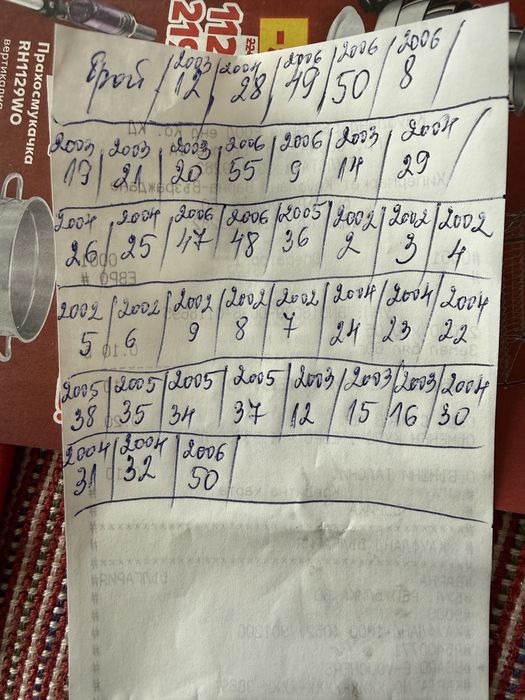 Прахосмукачка
RH1129WO
вертикална
112
219
Брой / 2003 / 2004 / 2006 / 2006 / 2006
12 / 28 / 49 / 50 / 8
2003 / 2003 / 2003 / 2006 / 2006 / 2003 / 2004
19 / 21 / 20 / 55 / 9 / 14 / 29
2004 / 2004 / 2006 / 2006 / 2005 / 2002 / 2002 / 2002
26 / 25 / 47 / 48 / 36 / 2 / 3 / 4
2002 / 2002 / 2002 / 2002 / 2002 / 2004 / 2004 / 2004
5 / 6 / 9 / 8 / 7 / 24 / 23 / 22
2005 / 2005 / 2005 / 2005 / 2003 / 2003 / 2003 / 2004
38 / 35 / 34 / 37 / 12 / 15 / 16 / 30
2004 / 2004 / 2006
31 / 32 / 50